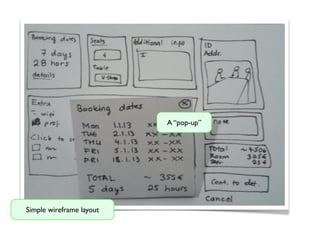 Booking dates
7 days
28 hours
details
Seats
4
Table
U-shap
Additional info
I
ID
Addr.
Extra
- wifi
proj.
Click to
Booking dates
X
MON 1.1.13 XX
TUE 2.1.13 XX - XX
THU 4.1.13 XX - XX
FRI 5.1.13 XX - XX
FRI 18.1.13 XX - XX
TOTAL ~ 355€
5 days 25 hours
A "pop-up"
note
Total ~450€
Room 325€
Cont. to det.
Cancel
Simple wireframe layout